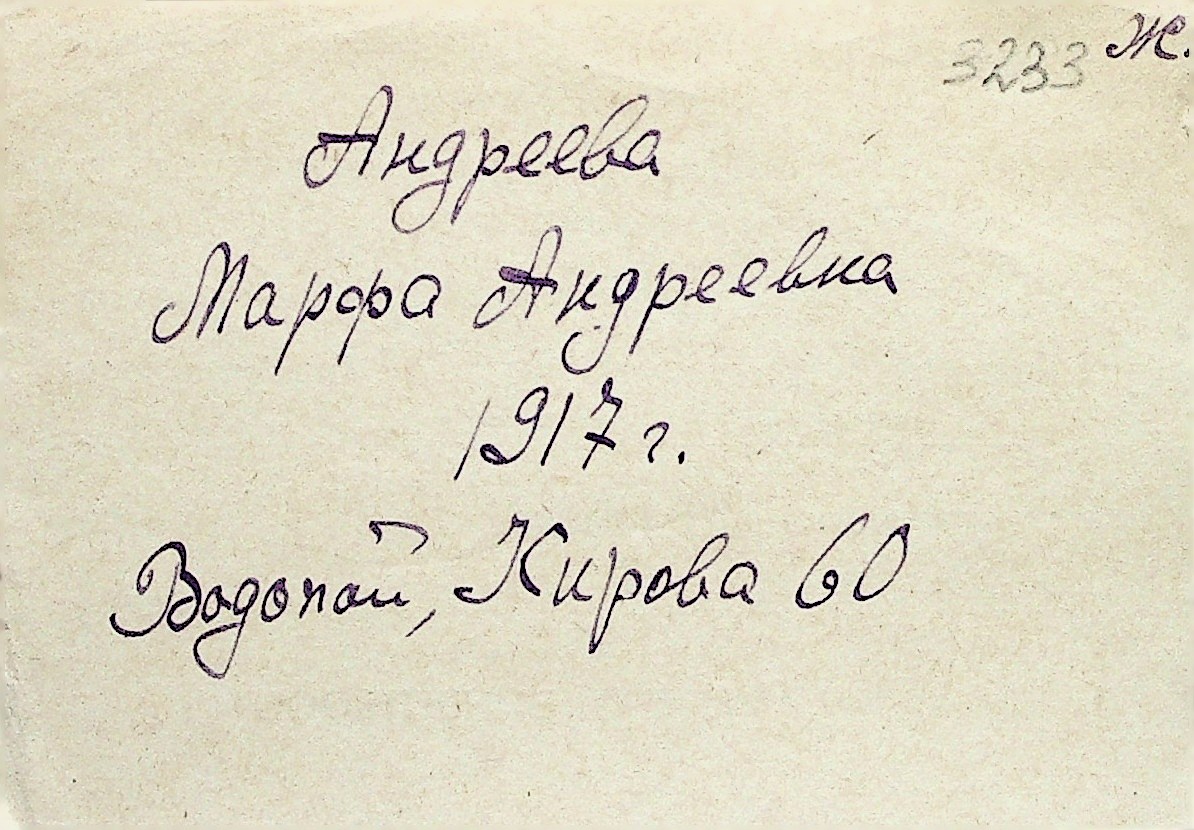 3233 Ж.
Андреева
Марфа Андреевна
1917 г.
Водопой, Кирова 60